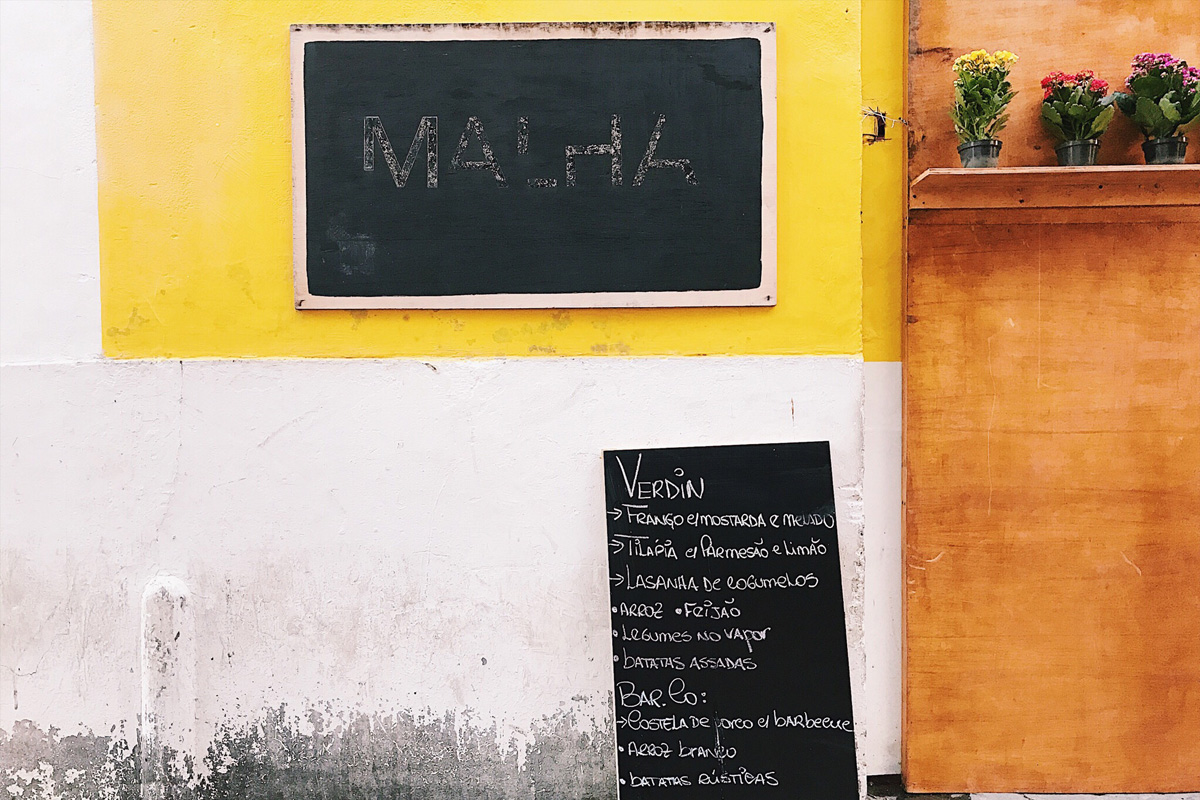 MALHA
VERDIN
→ FRANGO c/MOSTARDA e MELADO
→ TILÁPIA c/ PARMESÃO e LIMÃO
→ LASANHA DE COGUMELOS
• ARROZ • FEIJÃO
• LEGUMES NO VAPOR
• BATATAS ASSADAS
BAR.CO:
→ COSTELA DE PORCO c/ BARBECUE
• ARROZ BRANCO
• BATATAS RÚSTICAS